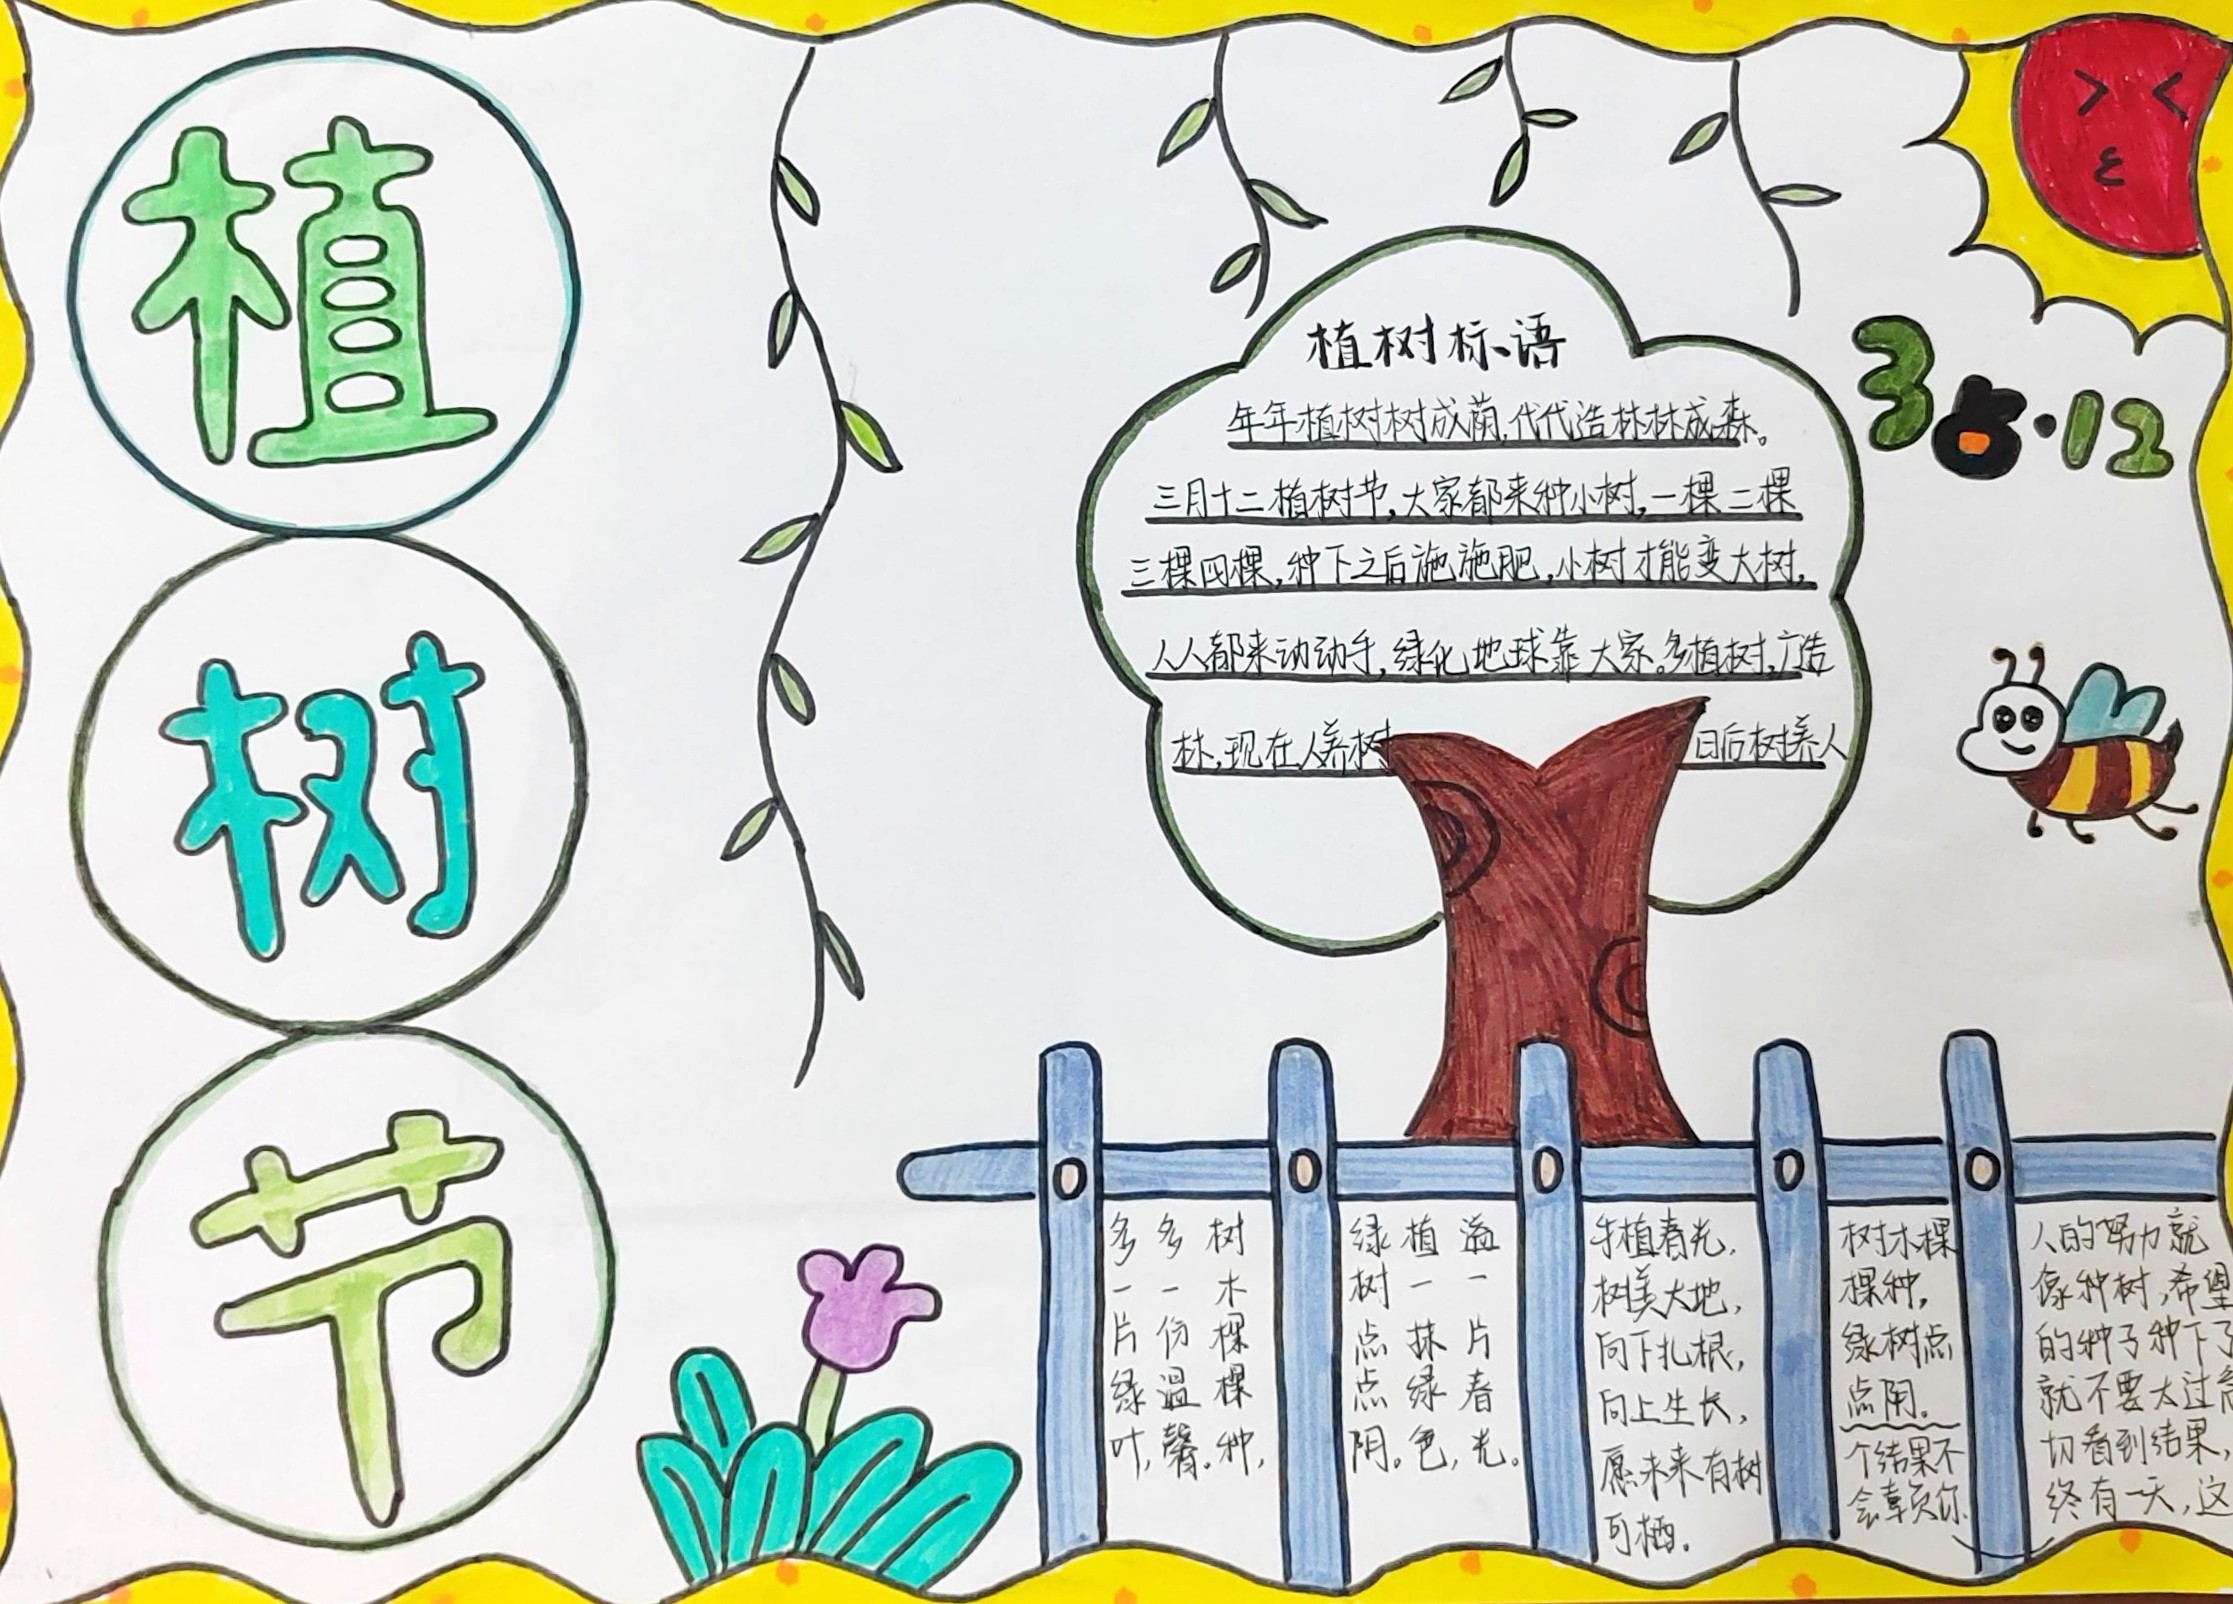 植
树
节
植树标语
年年植树树成荫,代代造林林成森。
三月十二植树节,大家都来种小树,一棵二棵
三棵四棵,种下之后施施肥,小树才能变大树,
人人都来动动手,绿化地球靠大家。多植树,广造
林,现在人养树 日后树养人
3·12
多一片绿叶,
多一份温馨。
树木棵棵种,
绿树点点阴。
植一抹绿色,
溢一片春光。
手植春光,
树美大地,
向下扎根,
向上生长,
愿未来有树
可栖.
树木棵
棵种,
绿树点
点阴.
个结果不
会辜负你.
人的努力就
像种树,希望
的种子种下了
就不要太过急
切看到结果,
终有一天,这